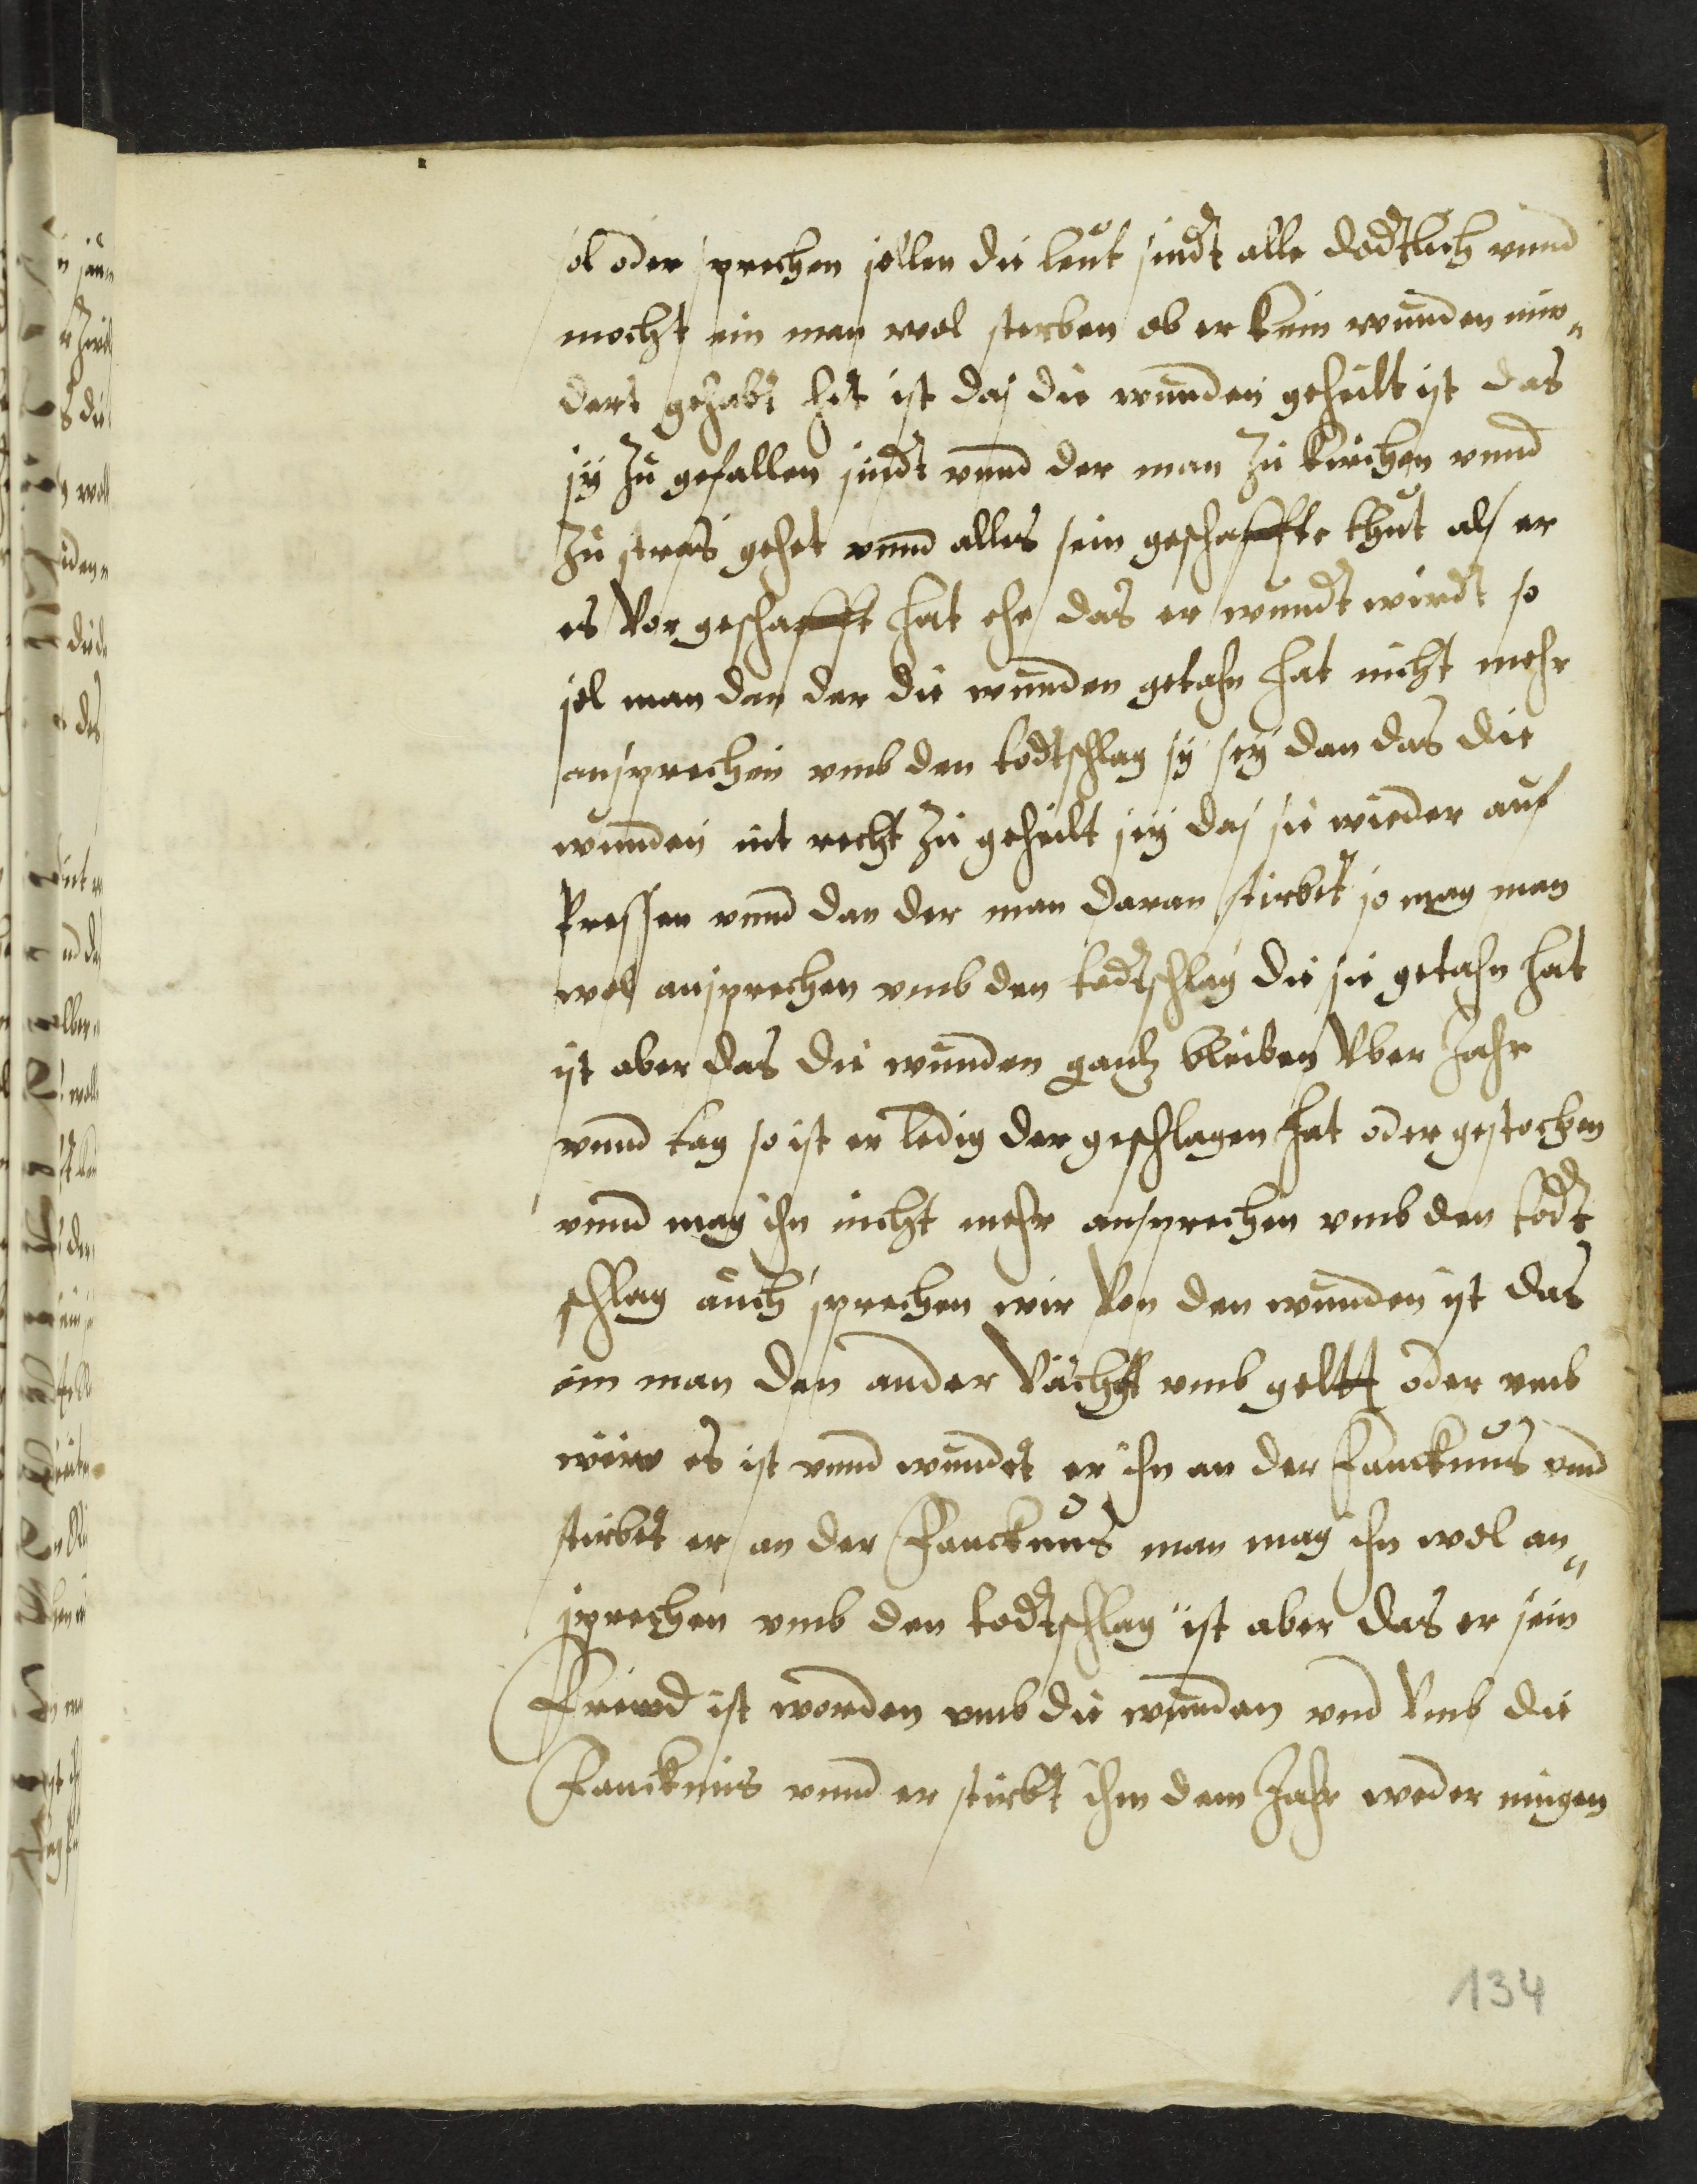 sol oder sprechen sollen die leut sindt alle dodtlich vnnd
mocht ein man wol sterben ob er kein wunden nie„
dert gehabt het ist das die wunden geheilt ist das
sy zu gefallen sindt vnnd der man zu kirchen vnnd
zu stras gehet vnnd alles sein geschaffte thut als er
es vor geschafft hat ehe das er wundt wirdt so
sol man den der die wunden getahn hat nicht mehr
ansprechen vmb den todtschlag sy sey dan das die
wunden nit recht zu geheilt sey das sie wieder auf
bressen vnnd dan der man daran stirbet so mag man
wol ansprechen vmb den todtschlag die sie getahn hat
ist aber das die wunden gantz bleiben vber Jahr
vnnd tag so ist er ledig der geschlagen hat oder gestochen
vnnd mag ihn nicht mehr ansprechen vmb den todt
schlag auch sprechen wir von den wunden ist das
ein man den ander vächgt vmb geltt oder vmb
wiew es ist vnnd wundet er ihn an der Fancknus vnnd
stirbet er an der Fancknus man mag ihn wol an„
sprechen vmb den todtschlag ist aber das er sein
Freund ist worden vmb die wunden vnd vmb die
Fancknis vnnd er stirbt ihm dem Jahr weder eingen
134